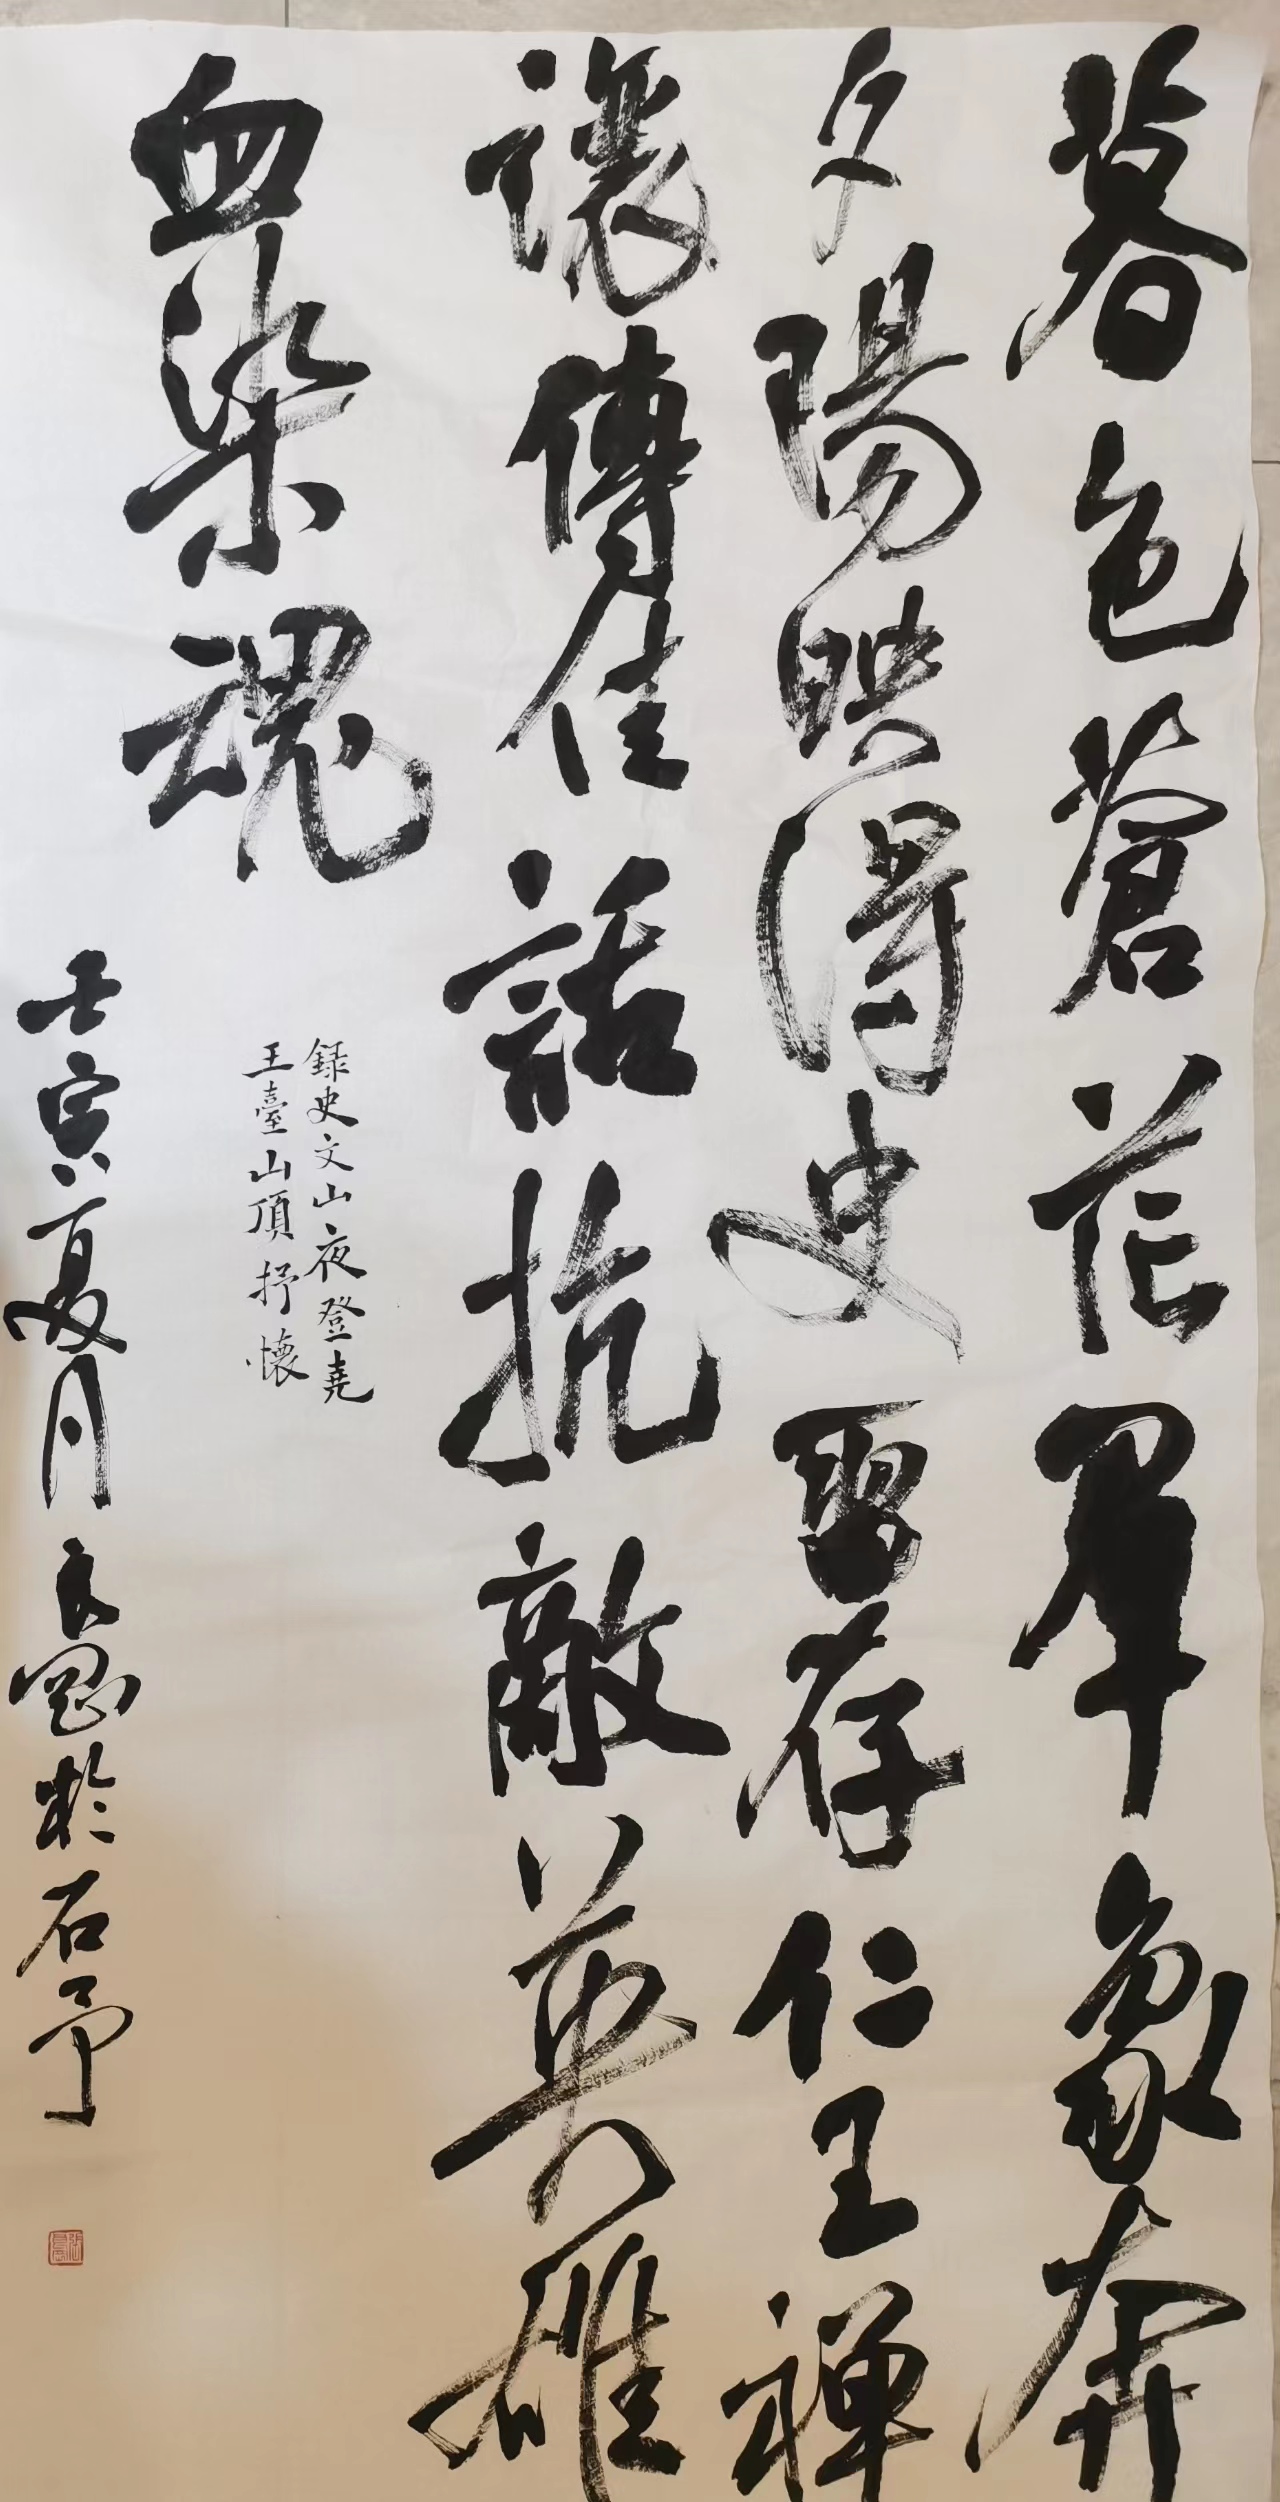 暮色蒼茫群象奔
夕陽映得史留存仁王禪
讓傳佳話抗敵英雄
血染魂
録史文山夜登堯
王臺山頂抒懷
壬寅夏月良國於石予